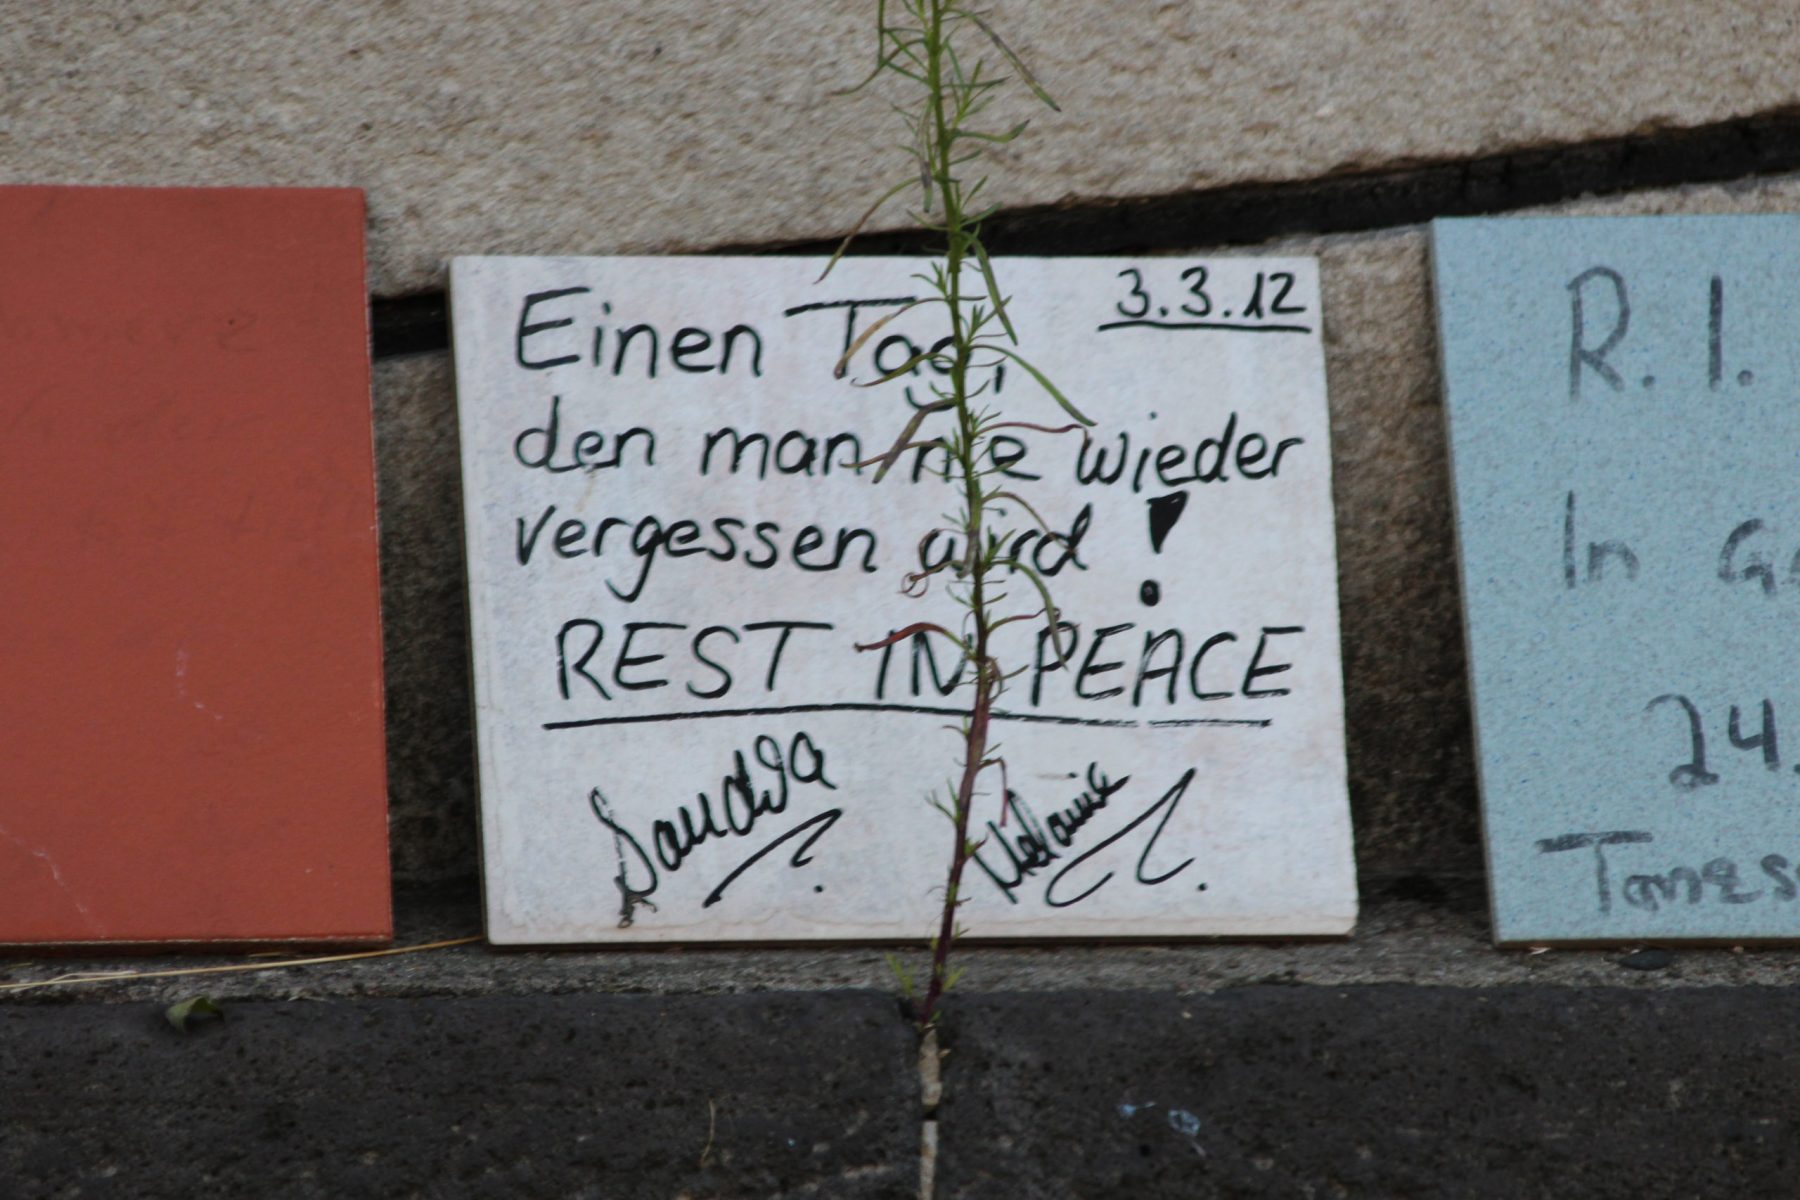 3.3.12
Einen Tag,
den man nie wieder
vergessen wird!
REST IN PEACE
Sandra
Melanie
R. I.
In
24.